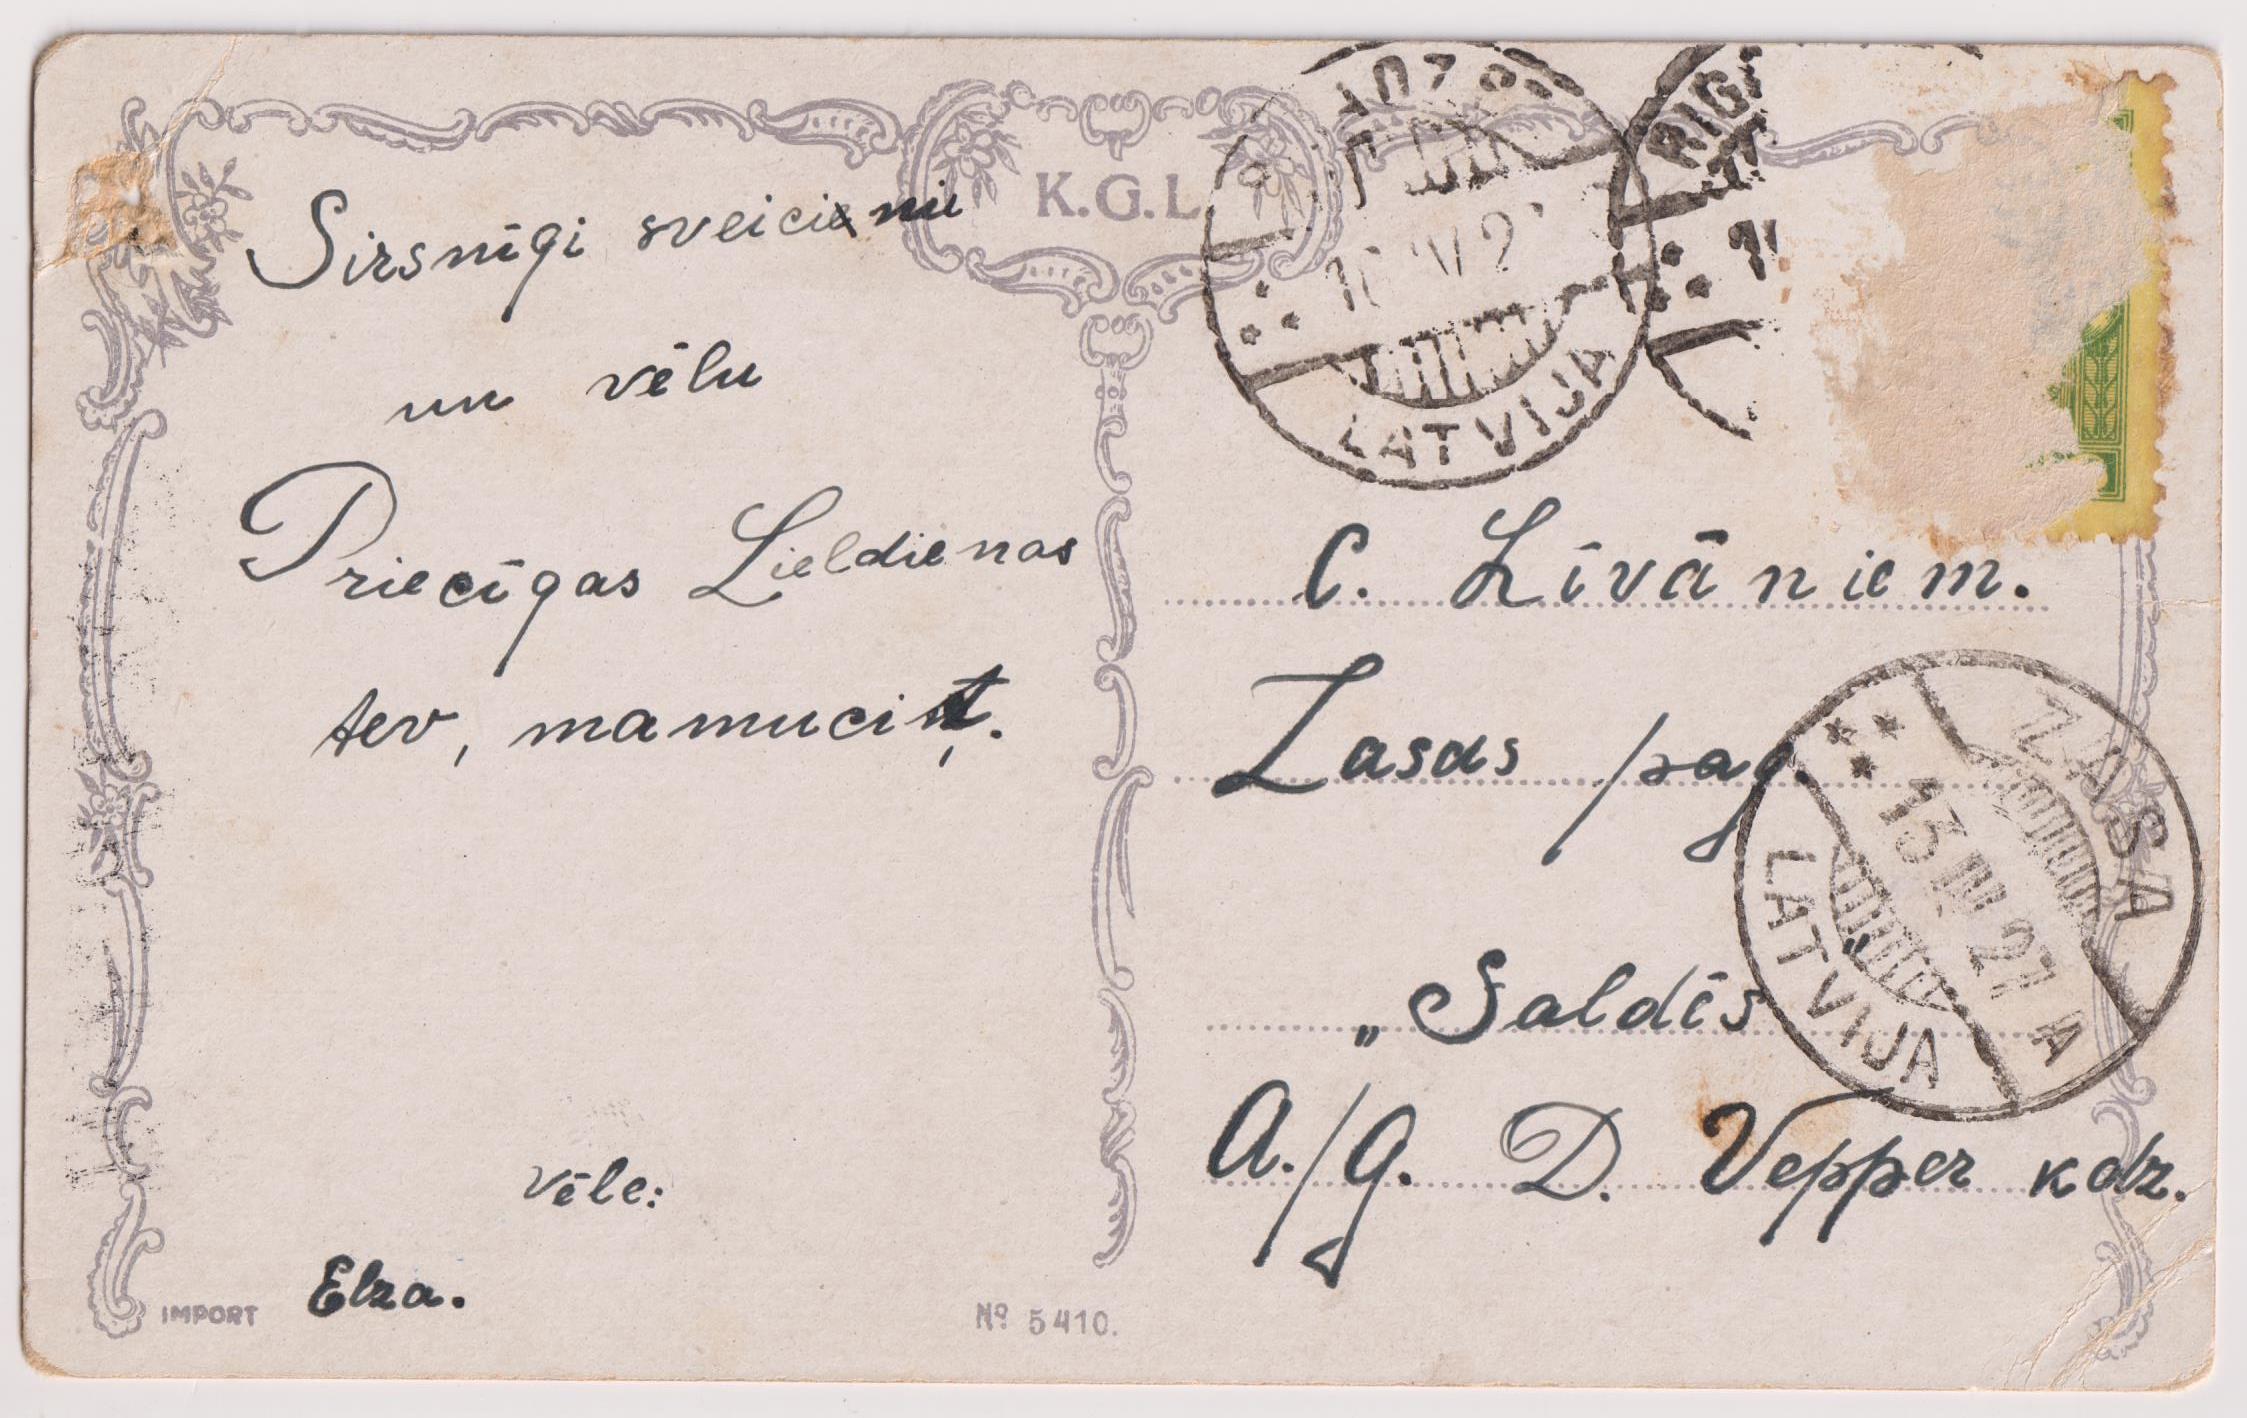 K.G.L.
Sirsnīgi sveicienu
un vēlu
Priecīgas Lieldienas
tev, mamuciņ.
vēle:
Elza.
IMPORT
№ 5410.
RIGA
LATVIJA
C. Līvāniem.
Zasas pag.
„Saldēs"
A./g. D. Vepper kdz.
ZASA
13 IV 27 A
LATVIJA